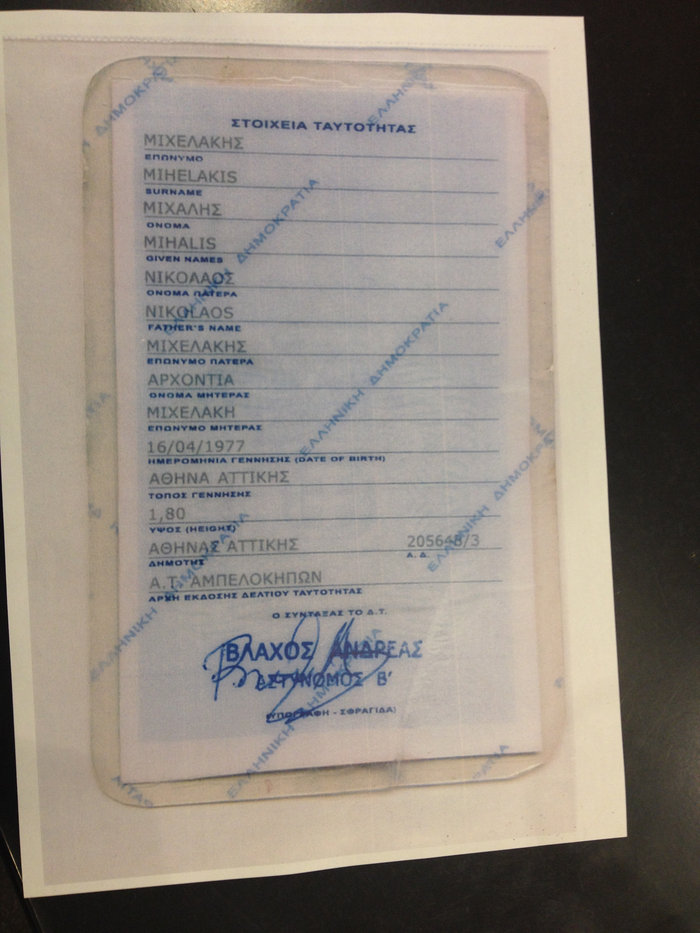 ΣΤΟΙΧΕΙΑ ΤΑΥΤΟΤΗΤΑΣ
ΜΙΧΕΛΑΚΗΣ
ΕΠΩΝΥΜΟ
MIHELAKIS
SURNAME
ΜΙΧΑΛΗΣ
ΟΝΟΜΑ
MIHALIS
GIVEN NAMES
ΝΙΚΟΛΑΟΣ
ΟΝΟΜΑ ΠΑΤΕΡΑ
NIKOLAOS
FATHER'S NAME
ΜΙΧΕΛΑΚΗΣ
ΕΠΩΝΥΜΟ ΠΑΤΕΡΑ
ΑΡΧΟΝΤΙΑ
ΟΝΟΜΑ ΜΗΤΕΡΑΣ
ΜΙΧΕΛΑΚΗ
ΕΠΩΝΥΜΟ ΜΗΤΕΡΑΣ
16/04/1977
ΗΜΕΡΟΜΗΝΙΑ ΓΕΝΝΗΣΗΣ (DATE OF BIRTH)
ΑΘΗΝΑ ΑΤΤΙΚΗΣ
ΤΟΠΟΣ ΓΕΝΝΗΣΗΣ
1,80
ΥΨΟΣ (HEIGHT)
ΑΘΗΝΑΣ ΑΤΤΙΚΗΣ 205648/3
ΔΗΜΟΤΗΣ Α.Δ.
Α.Τ. ΑΜΠΕΛΟΚΗΠΩΝ
ΑΡΧΗ ΕΚΔΟΣΗΣ ΔΕΛΤΙΟΥ ΤΑΥΤΟΤΗΤΑΣ
Ο ΣΥΝΤΑΞΑΣ ΤΟ Δ.Τ.
ΒΛΑΧΟΣ ΑΝΔΡΕΑΣ
ΑΣΤΥΝΟΜΟΣ Β'
(ΥΠΟΓΡΑΦΗ - ΣΦΡΑΓΙΔΑ)
ΕΛΛΗΝΙΚΗ ΔΗΜΟΚΡΑΤΙΑ